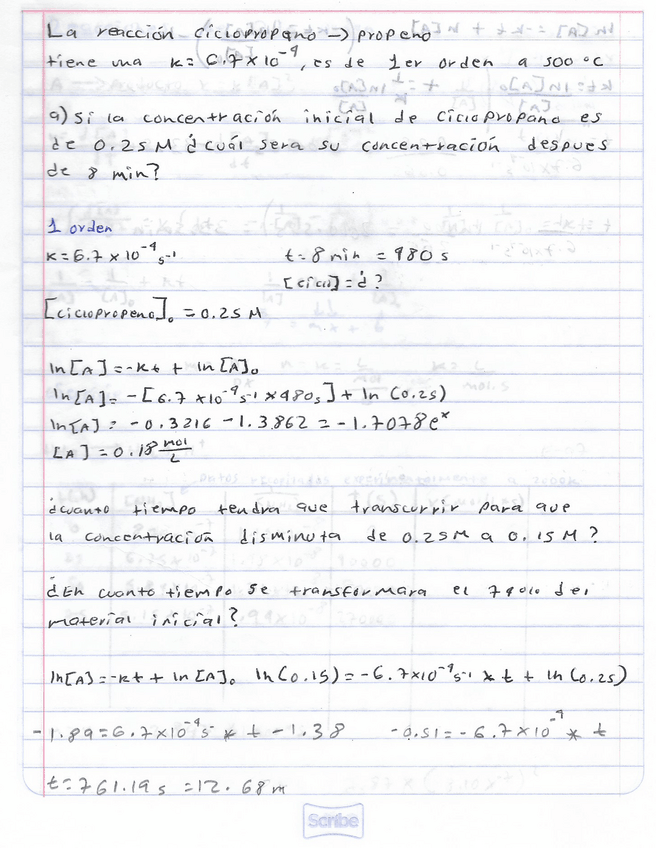 La reacción ciclopropano → propeno
tiene una k= 6.7 x 10⁻⁴, es de 1er orden a 500 °C
a) Si la concentración inicial de ciclopropano es
de 0.25 M ¿cuál sera su concentración despues
de 8 min?
1 orden
k=6.7 x 10⁻⁴ s⁻¹ t=8 min = 480 s
[ciclo]=¿?
[ciclopropeno]₀ = 0.25 M
ln[A]=-kt + ln[A]₀
ln[A]= -[6.7 x10⁻⁴ s⁻¹ x 480s] + ln (0.25)
ln[A]= -0.3216 -1.3862 = -1.7078 eˣ
[A] = 0.18 mol/L
¿cuanto tiempo tendra que transcurrir para que
la concentración disminuta de 0.25M a 0.15M?
¿En cuanto tiempo se transformara el 74% del
material inicial?
ln[A]=-kt + ln[A]₀ ln(0.15)=-6.7x10⁻⁴ s⁻¹ * t + ln(0.25)
-1.89=6.7x10⁻⁴ s⁻ * t -1.38 -0.51=-6.7x10⁻⁴ * t
t=761.19 s =12.68 m
Scribe